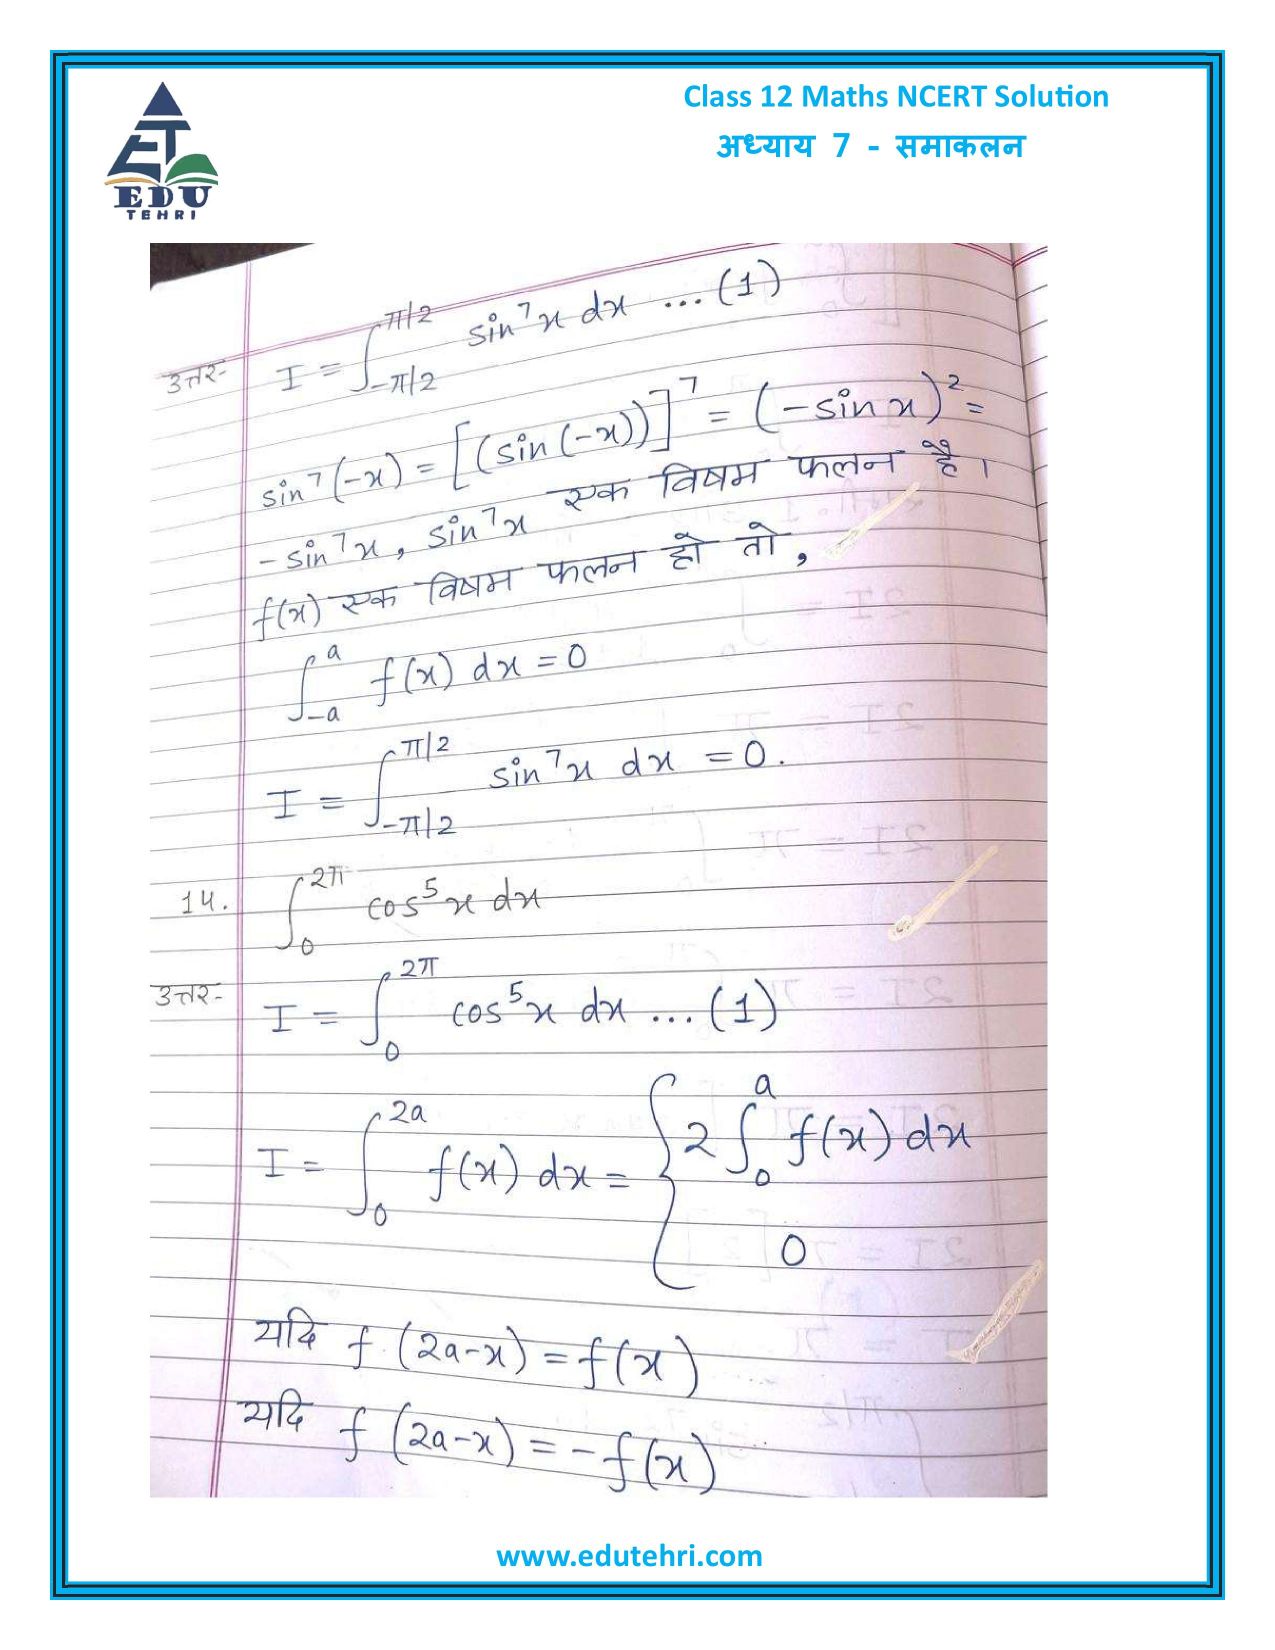 Class 12 Maths NCERT Solution
अध्याय 7 - समाकलन
ET
EDU
TEHRI
उत्तर- I = ∫_{-π/2}^{π/2} sin⁷x dx ... (1)
sin⁷(-x) = [(sin(-x))]⁷ = (-sin x)² =
-sin⁷x, sin⁷x एक विषम फलन है।
f(x) एक विषम फलन हो तो,
∫_{-a}^{a} f(x) dx = 0
I = ∫_{-π/2}^{π/2} sin⁷x dx = 0.
14. ∫_{0}^{2π} cos⁵x dx
उत्तर- I = ∫_{0}^{2π} cos⁵x dx ... (1)
I = ∫_{0}^{2a} f(x) dx = { 2∫_{0}^{a} f(x) dx
0
यदि f (2a-x) = f(x)
यदि f (2a-x) = -f(x)
www.edutehri.com